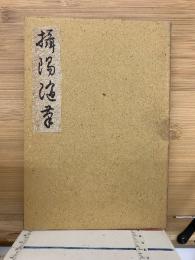 攝陽隨筆